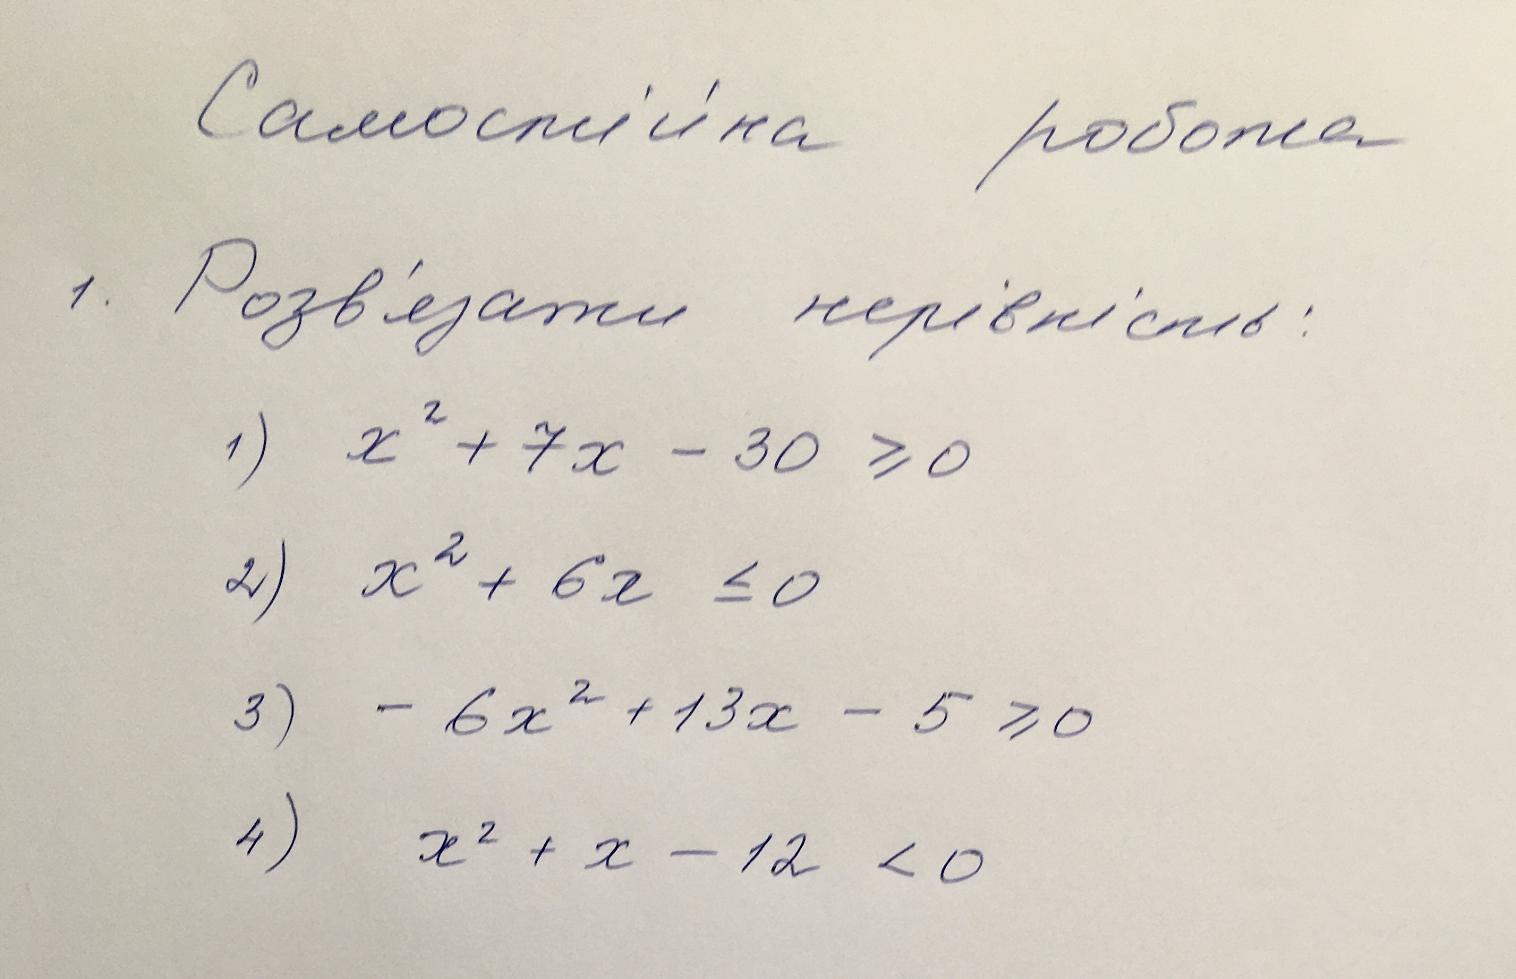 Самостійна робота
1. Розв'язати нерівність:
1) x² + 7x - 30 ⩾ 0
2) x² + 6x ≤ 0
3) - 6x² + 13x - 5 ⩾ 0
4) x² + x - 12 < 0